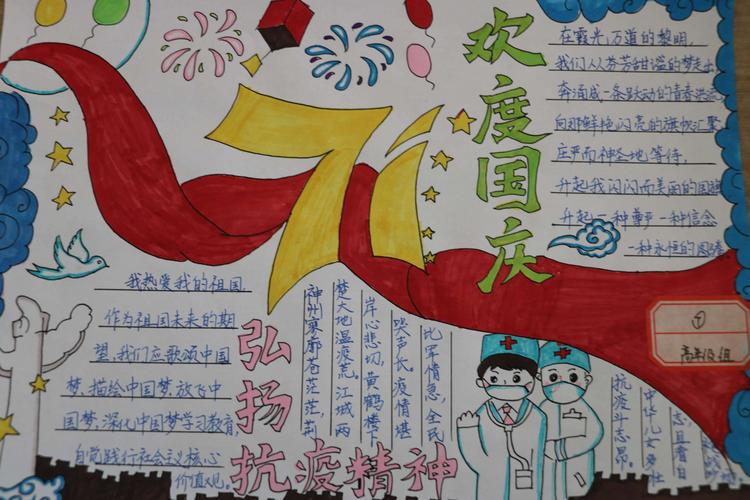 欢度国庆
71
在霞光万道的黎明,
我们从芬芳甜滋的梦走出,
奔涌成一条跃动的青春洪流
向那鲜艳闪亮的旗帜汇聚
庄严而神圣地等待,
升起我闪闪而美丽的国旗
升起一种尊严一种信念
一种永恒的图腾
①
高年级组
我热爱我的祖国,
作为祖国未来的期
望,我们应歌颂中国
梦,描绘中国梦,放飞中
国梦,深化中国梦学习教育,
自觉践行社会主义核心
价值观。
弘扬
抗疫精神
神州寥廓苍茫茫,荆
楚大地温疫荒。江城两
岸心悲切,黄鹤楼下
哭声长。疫情堪
比军情急,全民
抗疫斗志昂。
中华儿女多壮
志,且看